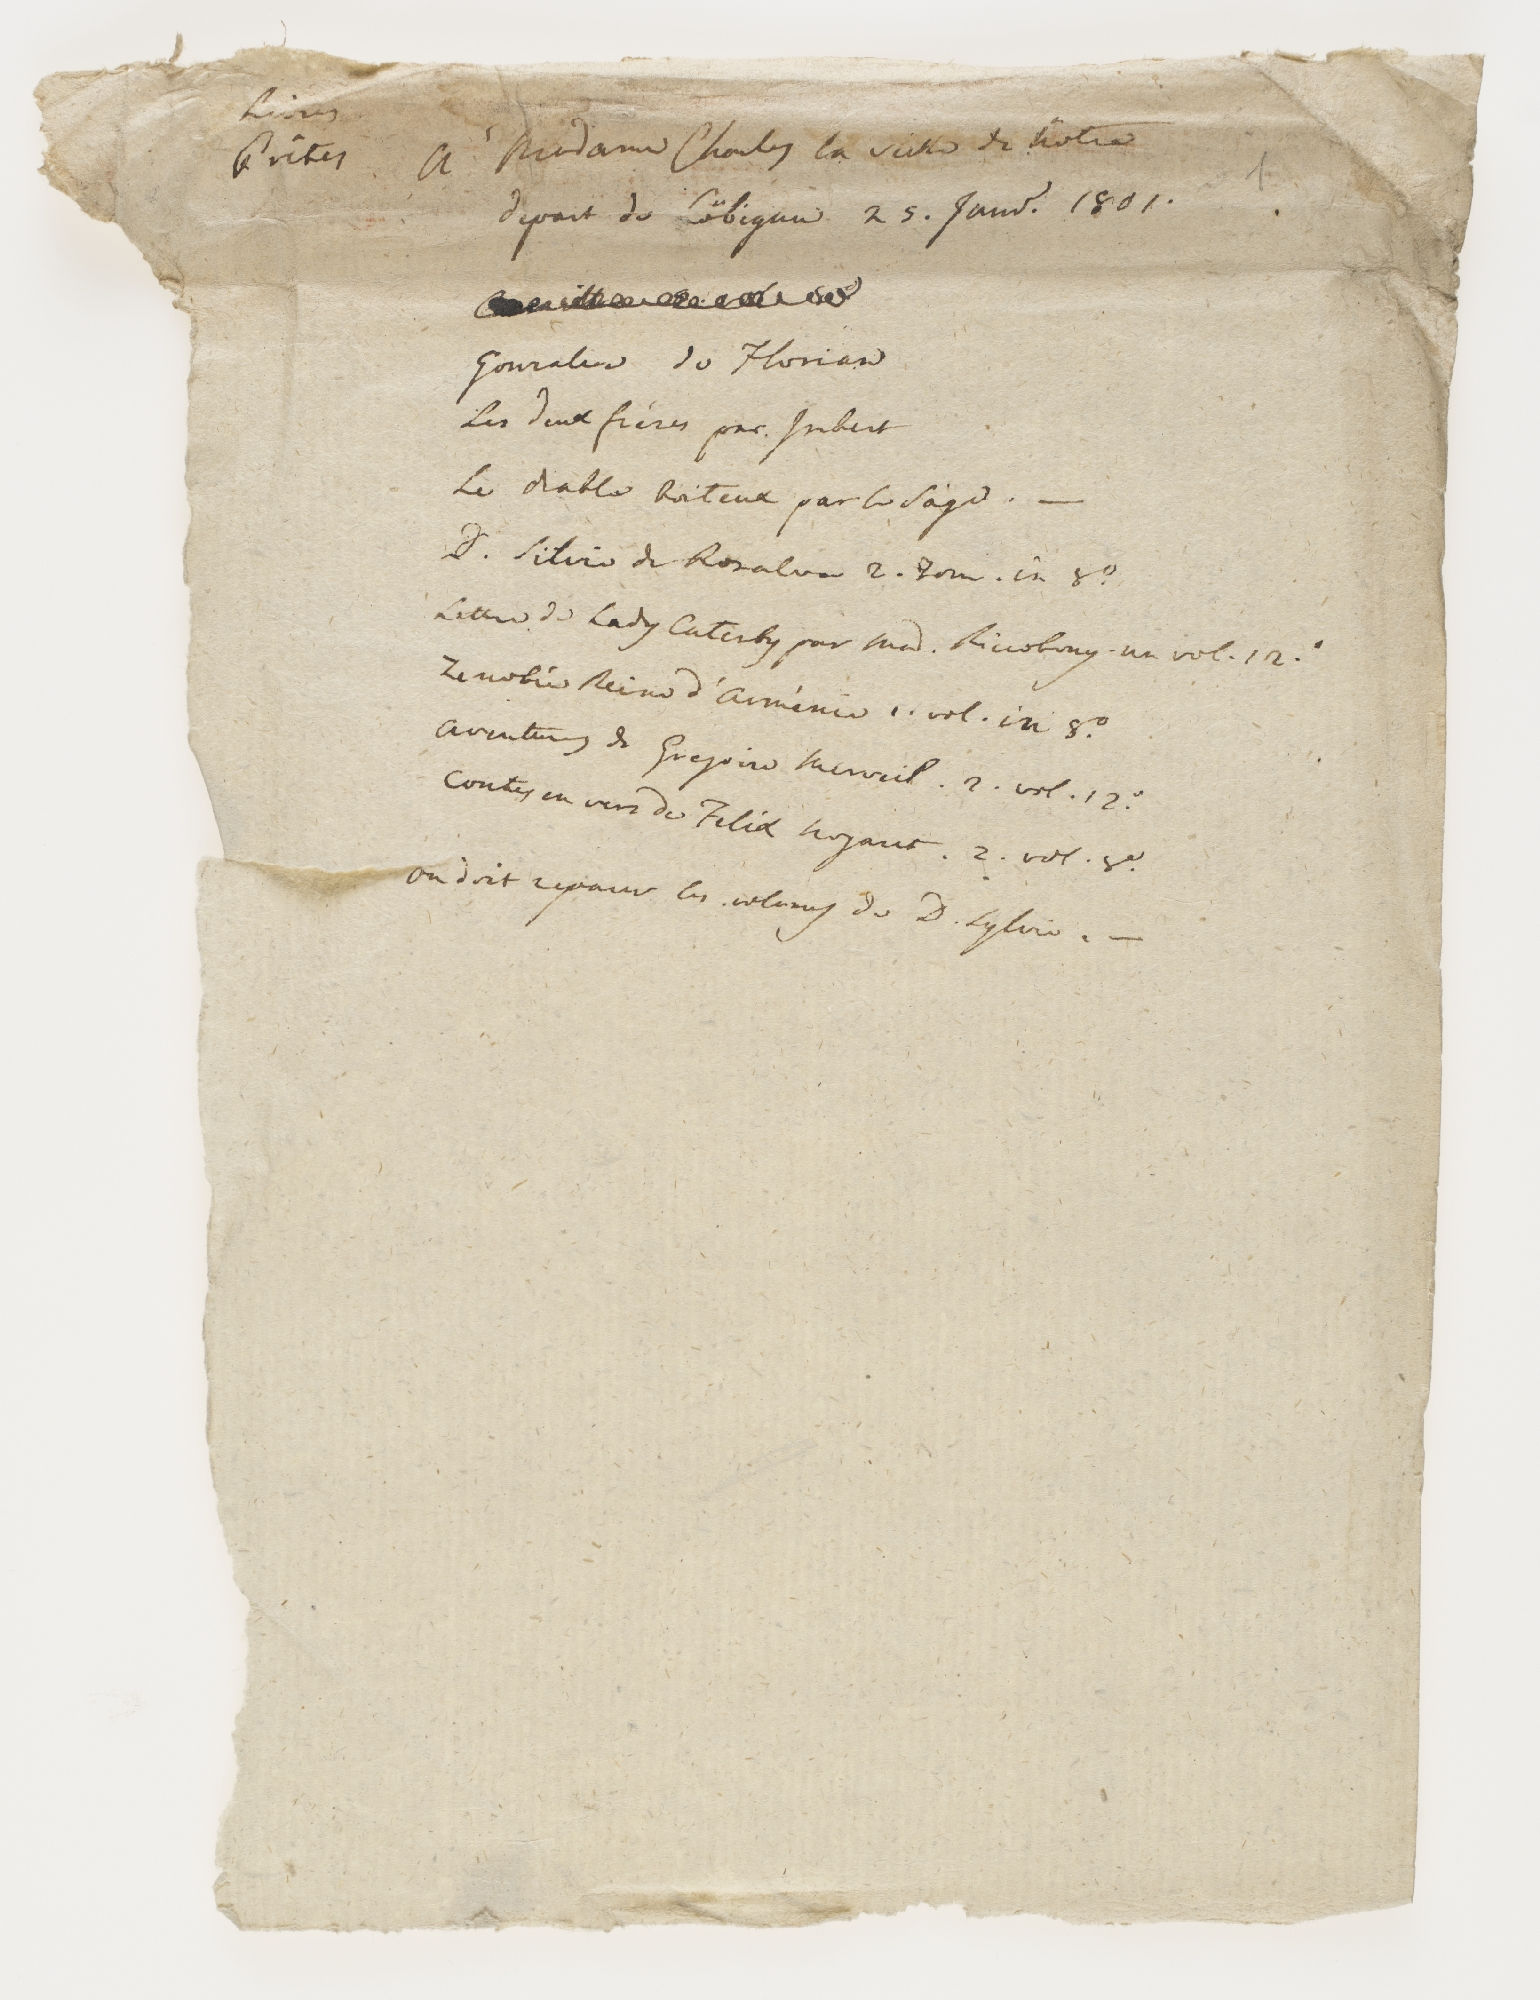 Livres
Prêtés à Madame Charles la veille de nôtre
depart de Löbiguin 25. Janv. 1801.
Gonzalve de Florian
Les deux frères par Imbert
Le diable boiteux par le Sage. —
D. Silvio de Rosalva 2. Tom. in 8°
Lettre de Lady Catesby par Mad. Riccobony un vol. 12.°
Zenobie Reine d'Arménie 1. vol. in 8°
Aventures de Gregoire Merveil. 2. vol. 12.°
Contes en vers de Felix Nogaret. 2. vol. 8°
on doit les volumes de D. Sylvio. —